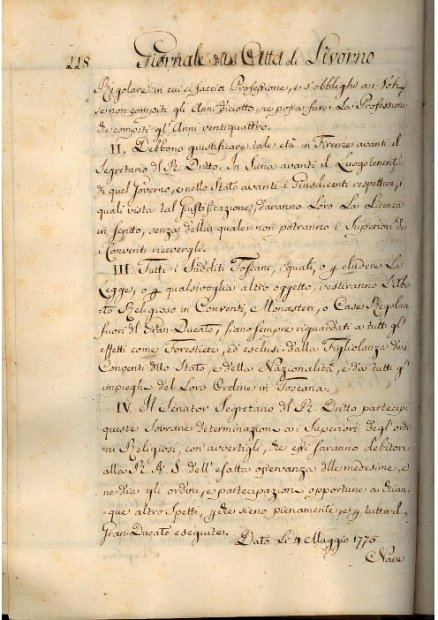 118 Giornale della Città di Livorno
Regolare in cui si faccia Professione, e s'obblighi ai Voti
se non compiti gli Anni diciotto, ne possa fare La Professione
che compiti gl'Anni ventiquattro.
II. Debbono giustificare tale età in Firenze avanti il
Segretario del R. Dritto. In Siena avanti il Luogotenente
di quel Governo, e nello Stato avanti i Giusdicenti respettivi, i
quali vista tal Giustificazione, daranno Loro La Licenza
in scritto, senza della quale non potranno i Superiori de
Conventi ricevergli.
III. Tutti i Sudditi Toscani, i quali, o p eludere La
Legge, o p qualsivoglia altro oggetto, vestiranno L'Abi-
to Religioso in Conventi, e Monasteri, o Case Regolari
fuori del Gran-Ducato, siano sempre riguardati a tutti gl'
effetti come Forestieri, ed esclusi dalla Figliolanza dei
Conventi dello Stato, e della Nazionalità, e da tutti gl'
impieghi del Loro Ordine in Toscana.
IV. Il Senator Segretario del R. Dritto partecipi
queste Sovrane determinazioni ai Superiori degl'ordi
ni Religiosi, con avvertigli, che essi saranno debitori
alla R. A. S. dell'esatta osservanza delle medesime, e
ne dia gli ordini, e partecipazioni opportune a chiun-
que altro spetti, p che sieno pienamente, e p tutto il
Gran-Ducato eseguite.
Dato Li 4 Maggio 1775
Nave